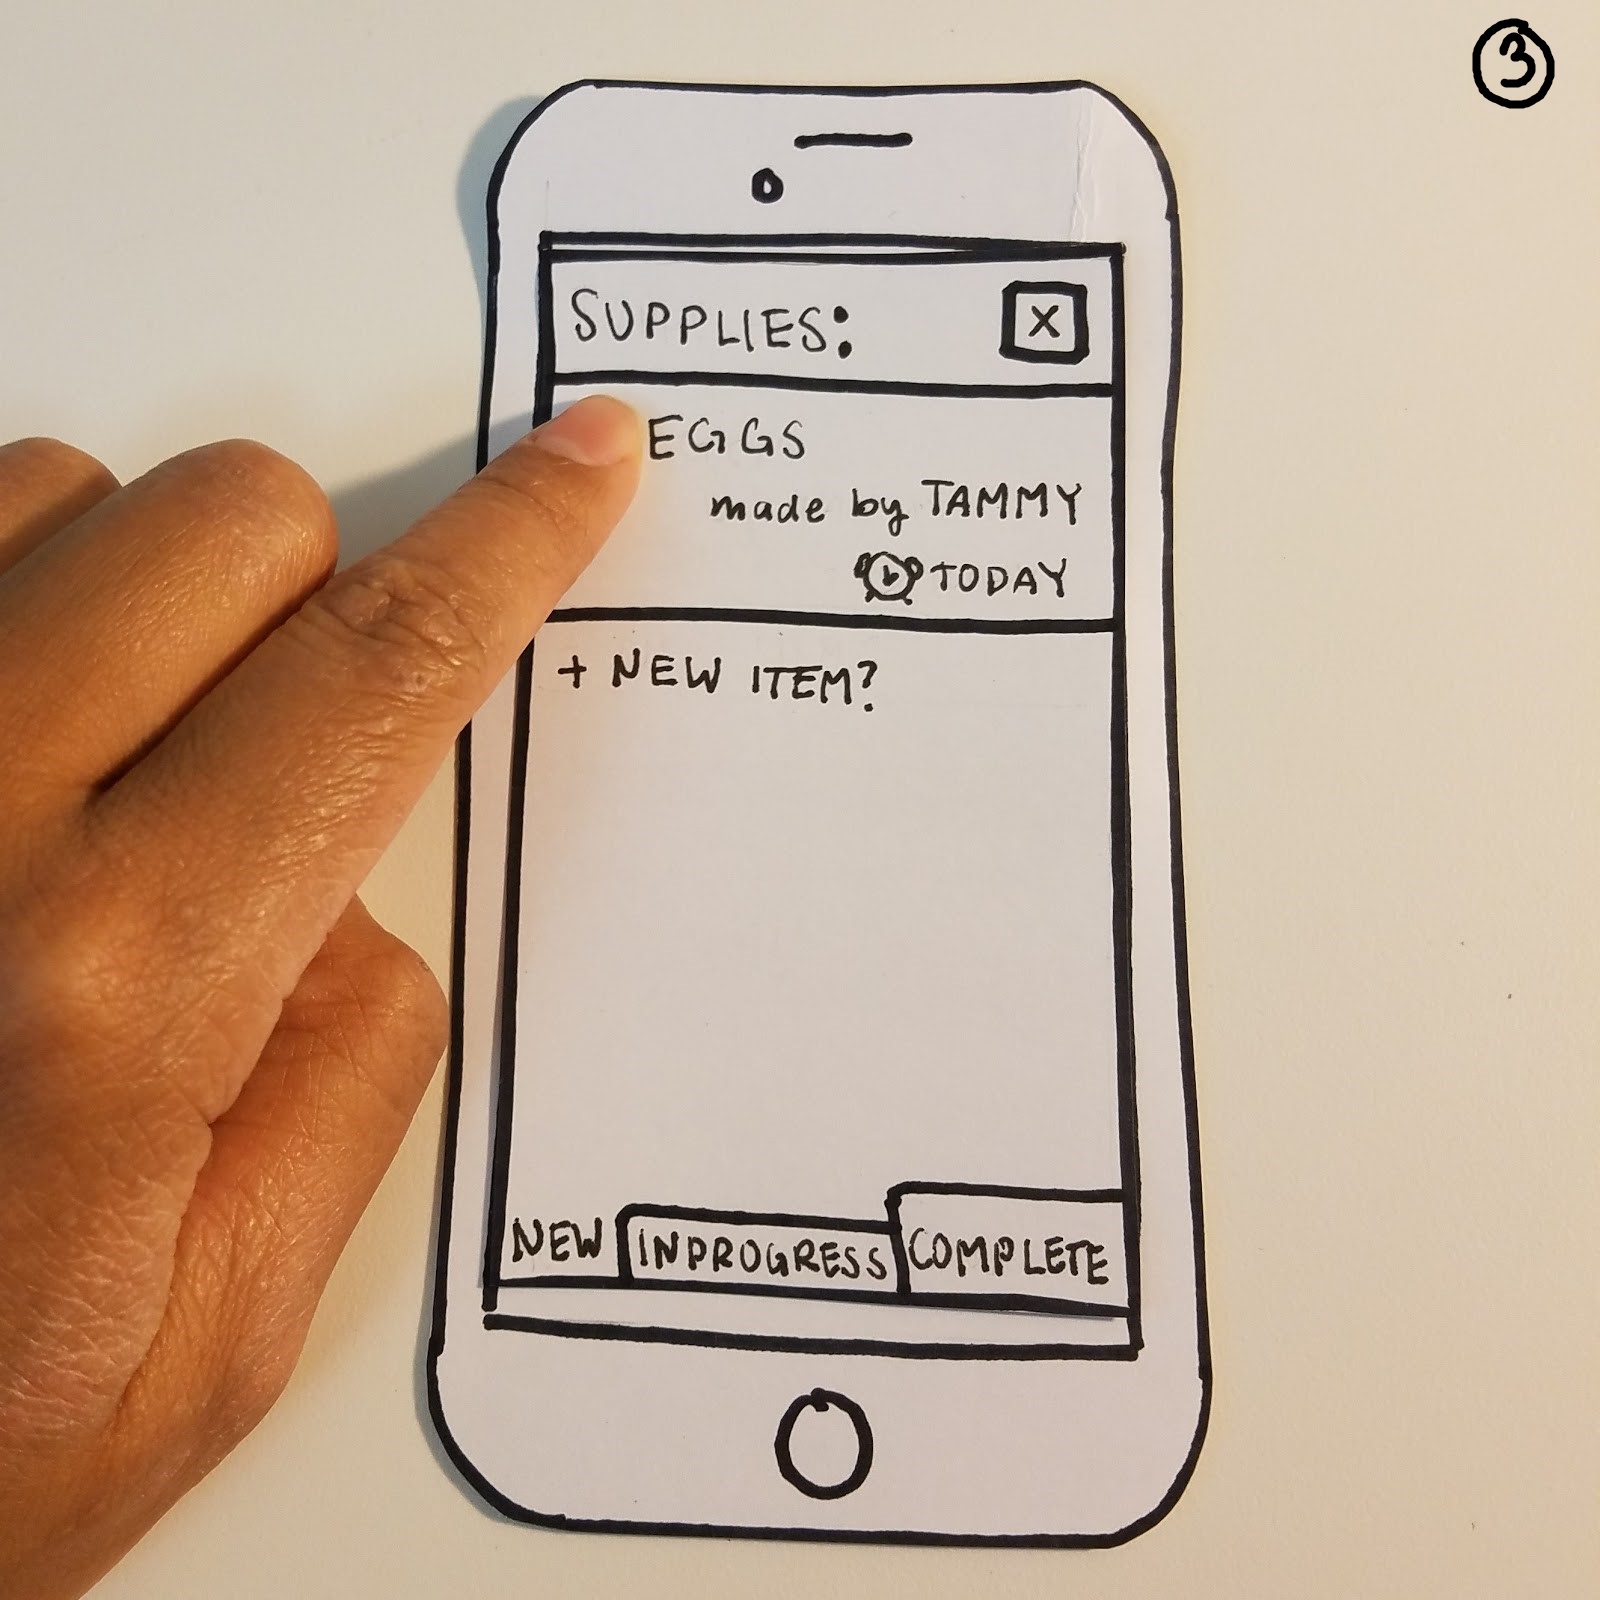 3
SUPPLIES:
X
EGGS
made by TAMMY
TODAY
+ NEW ITEM?
NEW INPROGRESS COMPLETE